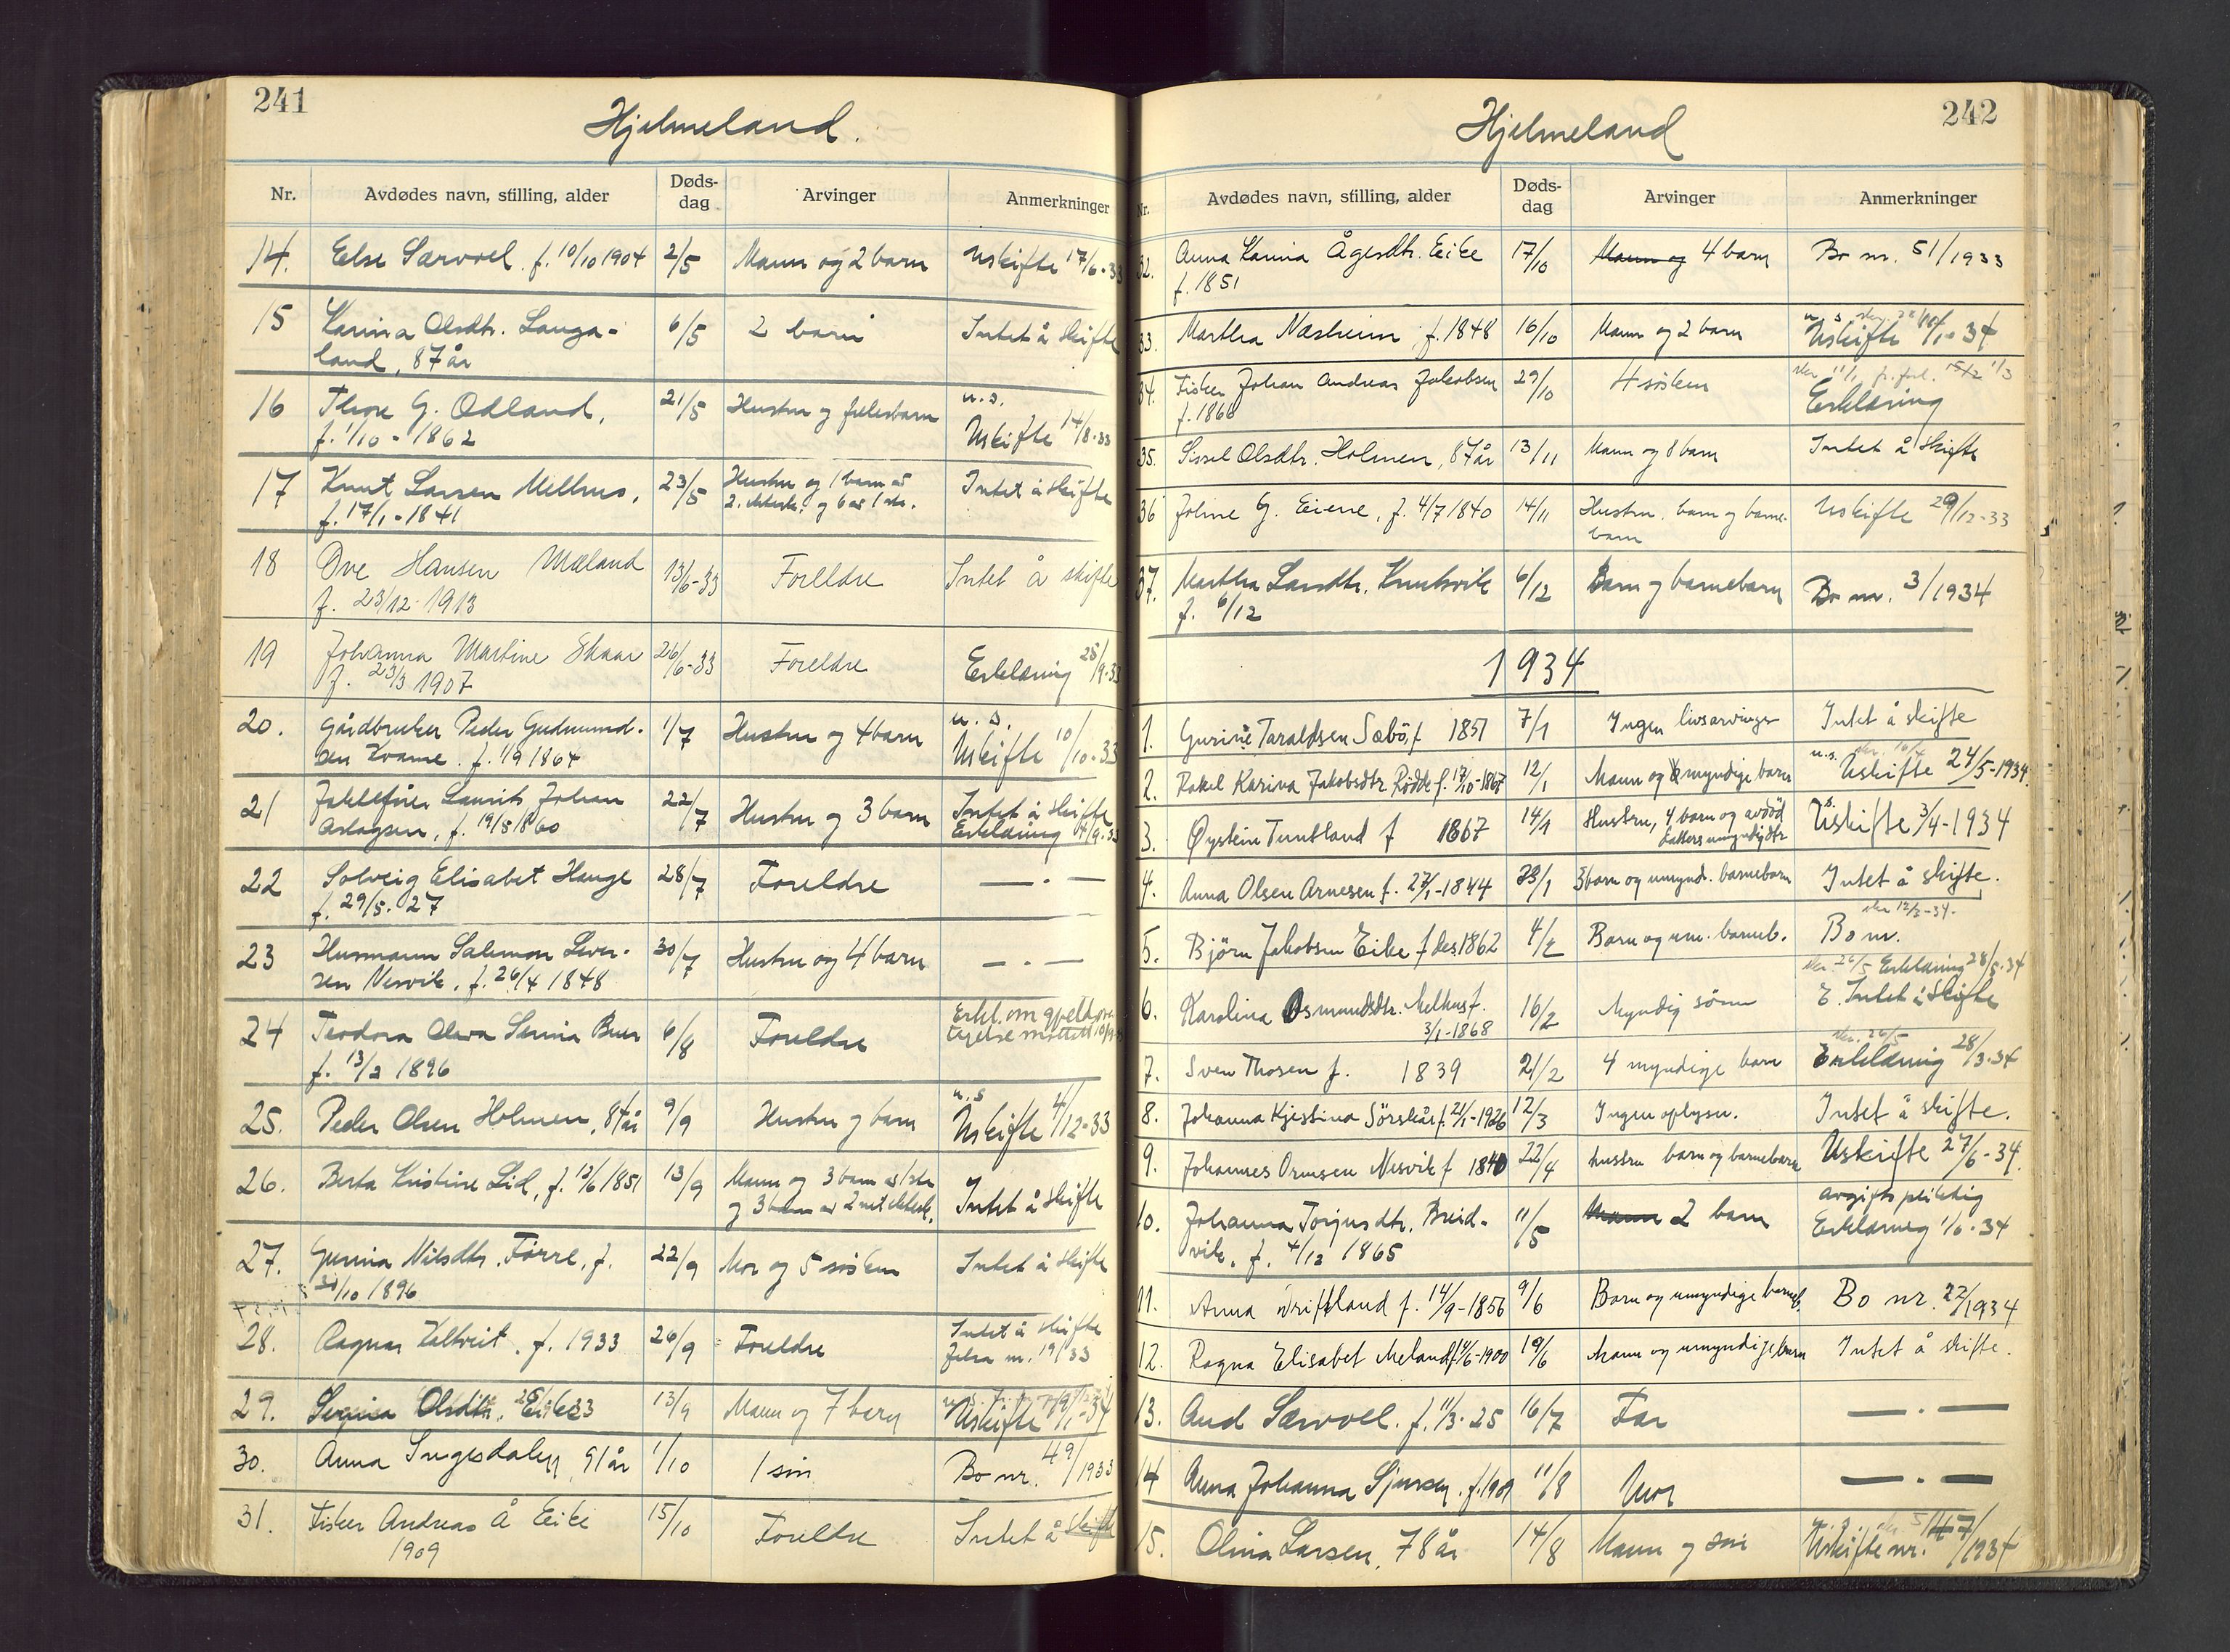 241
Hjelmeland.
Nr. Avdødes navn, stilling, alder Døds-dag Arvinger Anmerkninger
14. Else Særvoel. f. 10/10 1904 2/5 Mann og 2 barn Uskifte 17/6-33
15 Karina Olsdtr. Langa- 6/5 2 barn Intet å skifte
land, 87 år
16 G. Odland, 21/5 Hustru og fellesbarn u.s.
f. 1/10 - 1862 Uskifte 14/8-33
17 Knut Larsen Melhus, 23/5 Hustru og 1 barn av Intet å skifte
f. 17/1 - 1841 2. og 6 av 1
18 Ove Hansen Mæland 13/6-33 Forelldre Intet å skifte
f. 23/12 1913
19 Johanna Martine Skaar 26/6-33 Foreldre Erklæring 25/9-33
f. 23/3 1907
20. Gårdbruker Peder Gudmund- 1/7 Hustru og 4 barn u.s.
sen Kvame. f. 1/9 1864 Uskifte 10/10-33
21 Laurits Johan 22/7 Hustru og 3 barn Intet å skifte
Aslagsen, f. 19/5 1860 Erklæring
22 Solveig Elisabet Hauge 28/7 Foreldre — . —
f. 29/5. 27
23 Husmann Salemon Iver- 30/7 Hustru og 4 barn — . —
sen Nesvik, f. 26/4 1848
24 Teodora Olava Serina Buer 6/8 Foreldre Erkl. om gjeldsover-
f. 13/2 1896 tagelse mottatt
25. Peder Olsen Holmen, 84 år 9/9 Hustru og barn u.s
Uskifte 4/12-33
26. Berta Kristine Lid, f. 12/6 1851 13/9 Mann og 3 barn av 1ste
og 3 barn av 2net ektesk. Intet å skifte
27. Gurina Nilsdtr. Førre, f. 22/9 Mor og 5 søsken Intet å skifte
30/10 1896
28. Ragnar Kaltveit, f. 1933 26/9 Foreldre Intet å skifte
nr. 19/33
29. Serina Olsdtr. Eike 13/9 Mann og 7 barn Uskifte
30. Anna Ingesdalen, 91 år 1/10 1 søn Bo nr. 49/1933
31. Fisker Andreas Å Eike 15/10 Foreldre Intet å skifte
1909
242
Hjelmeland
Nr. Avdødes navn, stilling, alder Døds-dag Arvinger Anmerkninger
32. Anna Karina Ågesdtr. Eike 17/10 Mann og 4 barn Bo nr. 51/1933
f. 1851
33. Martha Næsheim, f. 1848 16/10 Mann og 2 barn Uskifte 11/1-34
34. Fisker Johan Andreas Jakobsen 29/10 4 søsken Erklæring
f. 1866
35. Sissel Olsdtr. Holmen, 87 år 13/11 Mann og 8 barn Intet å skifte
36 Johne G. Eiene, f. 4/7 1840 14/11 Hustru, barn og barne- Uskifte 29/12-33
barn
37. Martha Larsdtr. Knutsvik 6/12 Barn og barnebarn Bo nr. 3/1934
f. 6/12
1934
1. Gurine Taraldsen Sæbö, f 1851 7/1 Ingen livsarvinger Intet å skifte
2. Rakel Karina Jakobsdtr Rødde f. 17/10-1867 12/1 Mann og myndige barn u.s. Uskifte 24/5-1934
3. Øystein Tuntland f 1867 14/1 Hustru, 4 barn og avdöd Uskifte 3/4-1934
datters umyndig dtr
4. Anna Olsen Arnesen f. 27/1-1844 23/1 3 barn og umynd. barnebarn Intet å skifte.
5. Björn Jakobsen Eike f des. 1862 4/2 Barn og um. barneb. Bo nr.
Erklæring 28/5-34
6. Karolina Osmundsdtr. Melhus f. 16/2 Myndig sönn E. Intet å skifte
3/1-1868
7. Sven Thosen f. 1839 21/2 4 myndige barn Erklæring 28/3-34
8. Johanna Kjestina Sörskår f. 21/1-1926 12/3 Ingen oplysn. Intet å skifte.
9. Johannes Ormsen Nesvik f 1840 22/4 hustru barn og barnebarn Uskifte 27/6-34.
10. Johanna Torjusdtr. Breid- 11/5 Mann 2 barn avgiftspliktig
vik, f. 4/12 1865 Erklæring 1/6-34
11. Anna Driftland f. 14/9-1856 9/6 Barn og umyndige barneb. Bo nr. 22/1934
12. Ragna Elisabet Meland f. 14/6-1900 10/6 Mann og umyndige barn Intet å skifte.
13. Aud Særvoel. f. 11/3-25 16/7 Far — . —
14 Anna Johanna Sjursen. f. 1909 11/8 Mor — . —
15. Olina Larsen, 78 år 14/8 Mann og søn Uskifte nr. 47/1934